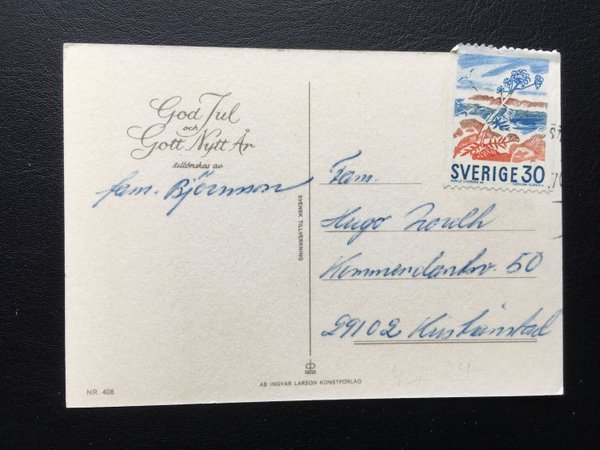 God Jul
och
Gott Nytt År
tillönskas av
fam. Björnsson
SVENSK TILLVERKNING
SVERIGE 30
Fam.
Hugo
50
29102 Kristianstad
AB INGVAR LARSON KONSTFÖRLAG
NR. 408